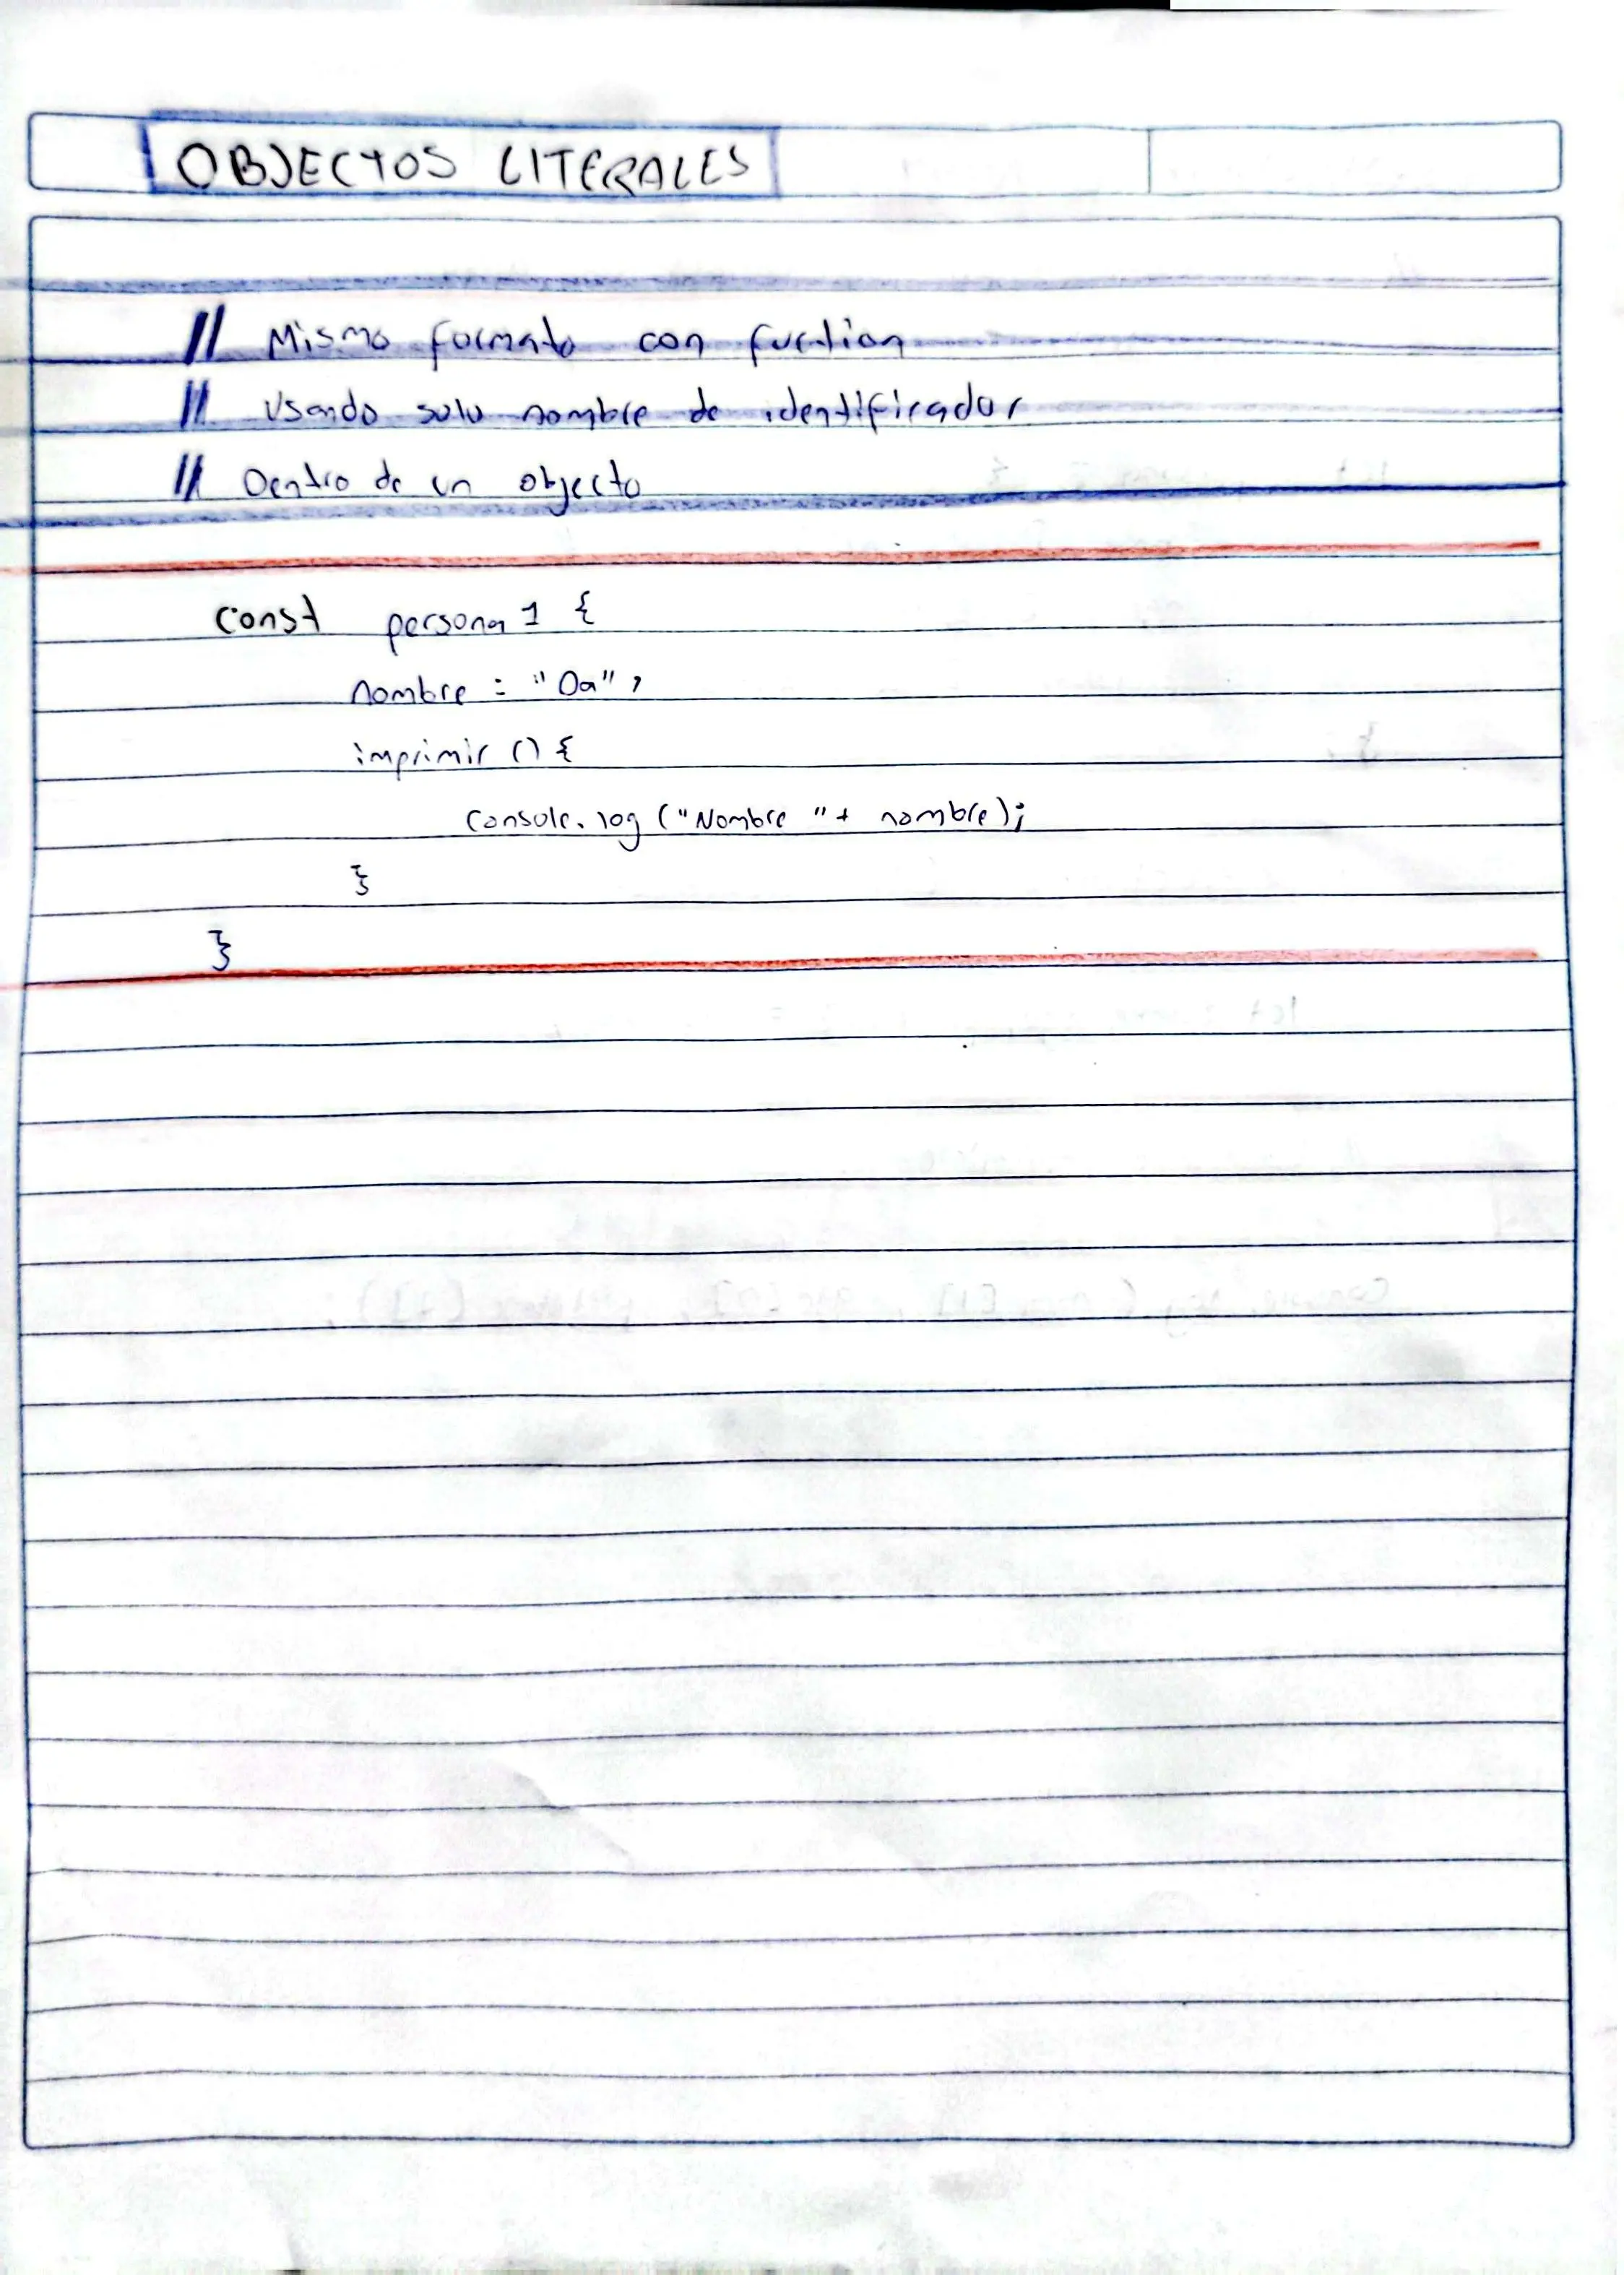 OBJECTOS LITERALES
// Mismo formato con function
// Usando solo nombre de identificador
// Dentro de un objecto
const persona1 {
nombre : "Oa",
imprimir () {
console.log ("Nombre "+ nombre);
}
}